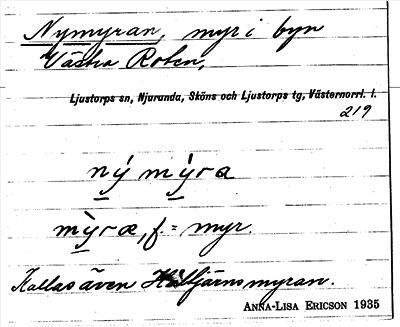 Nymyran, myr i byn
Västra Roten,
Ljustorps sn, Njurunda, Sköns och Ljustorps tg, Västernorrl. l.
219
ný mỳra
mỳræ, f. = myr.
Kallas även Håltjärnsmyran.
ANNA-LISA ERICSON 1935